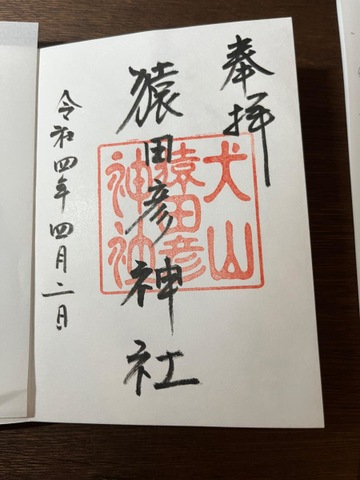 奉拝
犬山
猿田彦
神社
猿田彦神社
令和四年四月二日